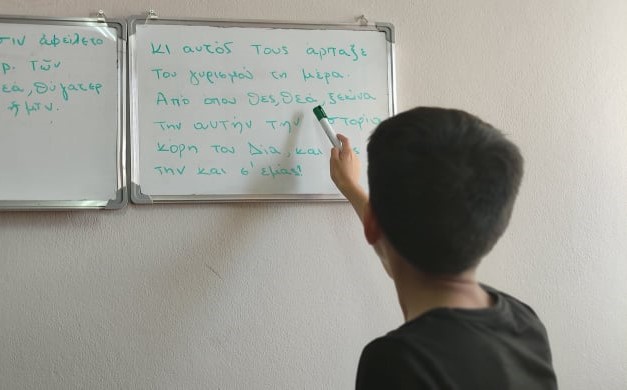 στιν ἀφείλετο
ρ. τῶν
εά, θύγατερ
ἡμῖν.
κι αυτός τους αρπαξε
του γυρισμού τη μέρα.
Από οπου θες, θεά, ξεκίνα
την αυτήν την στορία
κόρη του Δία, και
την και σ' εμάς!